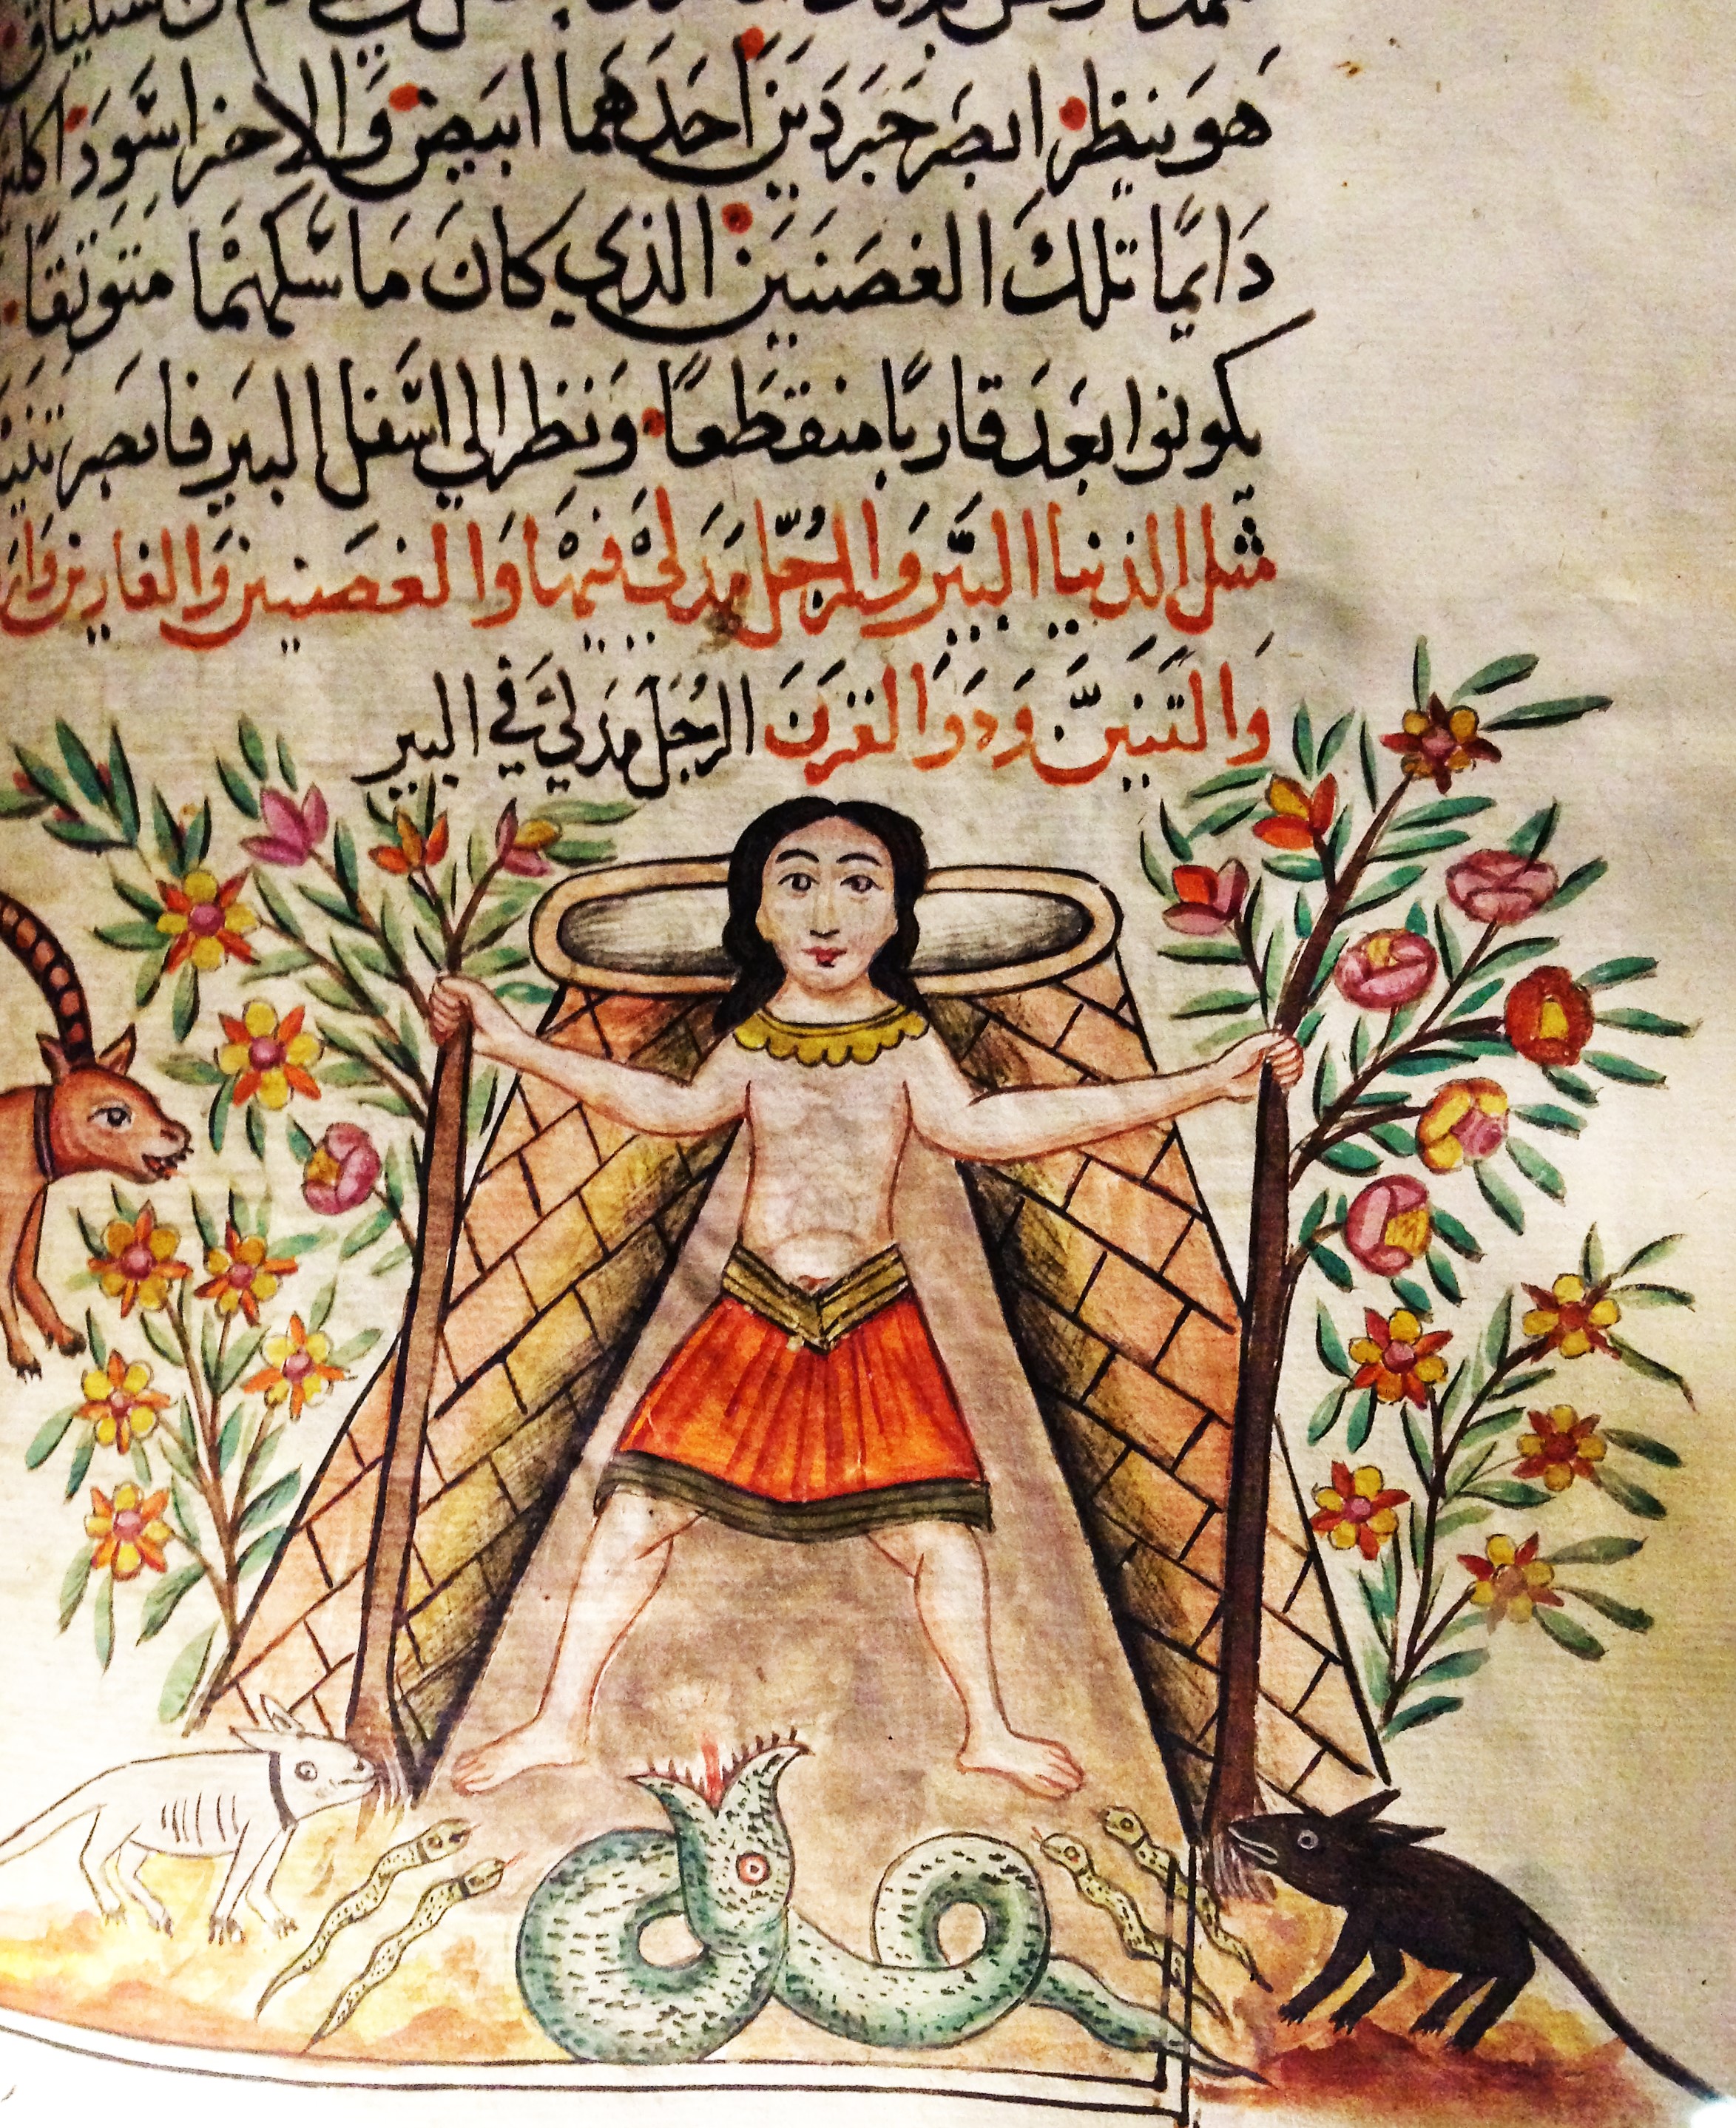 هو ينظر ابصر جردين احدهما ابيض والاخر اسود
دايمًا تلك الغصنين الذي كان ماسكهما متوثقًا
يكونوا بعد قاربا منقطعًا ونظر الي اسفل البير فابصر
مثل الدنيا البير والرجل مدلي فيها والغصنين والفارين
والتنين وذو القرن الرجل مدلي في البير